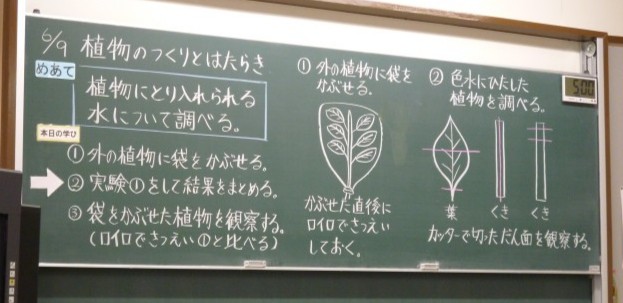 6/9 植物のつくりとはたらき
めあて
植物にとり入れられる
水について調べる。
本日の学び
①外の植物に袋をかぶせる。
②実験①をして結果をまとめる。
③袋をかぶせた植物を観察する。
(ロイロでさつえい①と比べる)
①外の植物に袋を
かぶせる。
かぶせた直後に
ロイロでさつえい
しておく。
②色水にひたした
植物を調べる。
葉 くき くき
カッターで切っただん面を観察する。
5:00